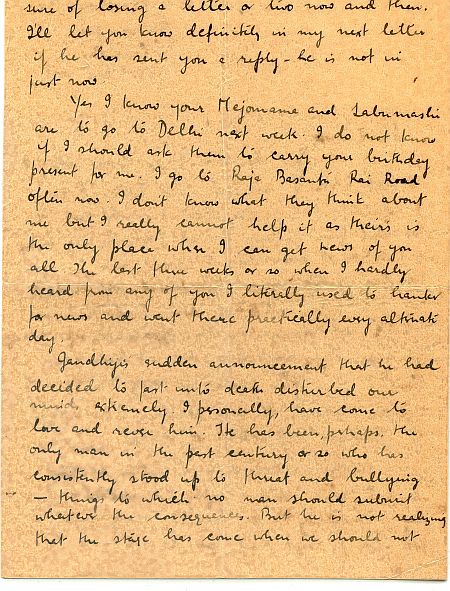 sure of losing a letter or two now and then.
I'll let you know definitely in my next letter
if he has sent you a reply - he is not in
just now.
Yes I know your Mejomama and Labumashi
are to go to Delhi next week. I do not know
if I should ask them to carry your birthday
present for me. I go to Raja Basanta Rai Road
often now. I dont know what they think about
me but I really cannot help it as theirs is
the only place where I can get news of you
all. The last three weeks or so when I hardly
heard from any of you I literally used to hanker
for news and went there practically every alternate
day.
Gandhiji's sudden announcement that he had
decided to fast unto death disturbed our
minds extremely. I personally, have come to
love and revere him. He has been, perhaps, the
only man in the past century or so who has
consistently stood up to threat and bullying
— things to which no man should submit
whatever the consequences. But he is not realizing
that the stage has come when we should not